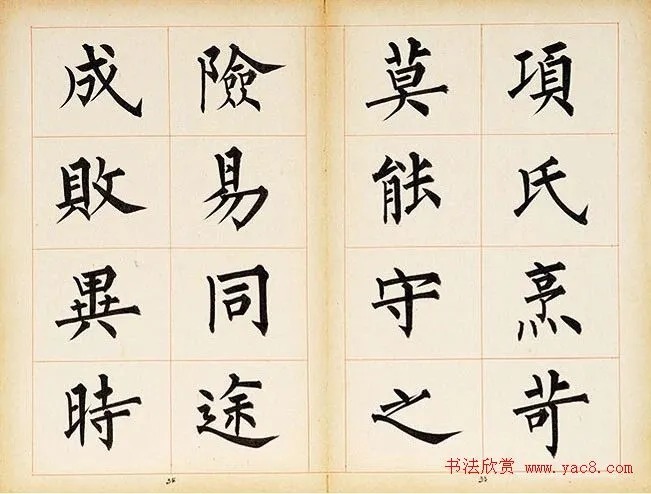 項氏烹苛
莫能守之
險易同途
成敗異時
书法欣赏 www.yac8.com